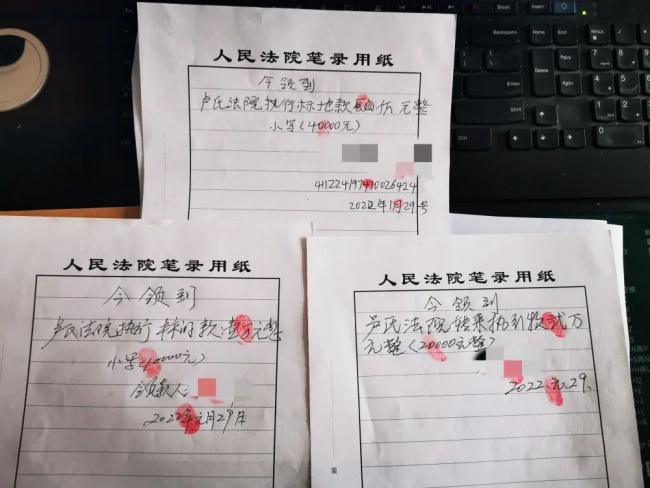 人民法院笔录用纸
今领到
卢氏法院执行标地款肆万元整
小写(40000元)
2022年1月29号
人民法院笔录用纸
今领到
卢氏法院执行标的款壹万元整
小写(10000元)
领款人:
2022年元月29日
人民法院笔录用纸
今领到
卢氏法院转来执行款贰万
元整(20000元整)
2022.元.29.
装
Backspace
Home
Enter
Shift
Ctrl